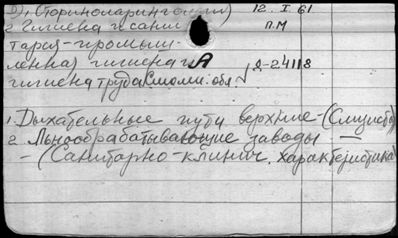 1) (Оториноларингология) 12.I.61
2. Гигиена и сани- П.М
тария-промыш-
ленная гигиена и
гигиена труда Смолен. обл. √ Д-24118
1. Дыхательные пути верхние-(Слизистая
2 Льнообрабатывающие заводы —
- (Санитарно-клинич. характеристика)